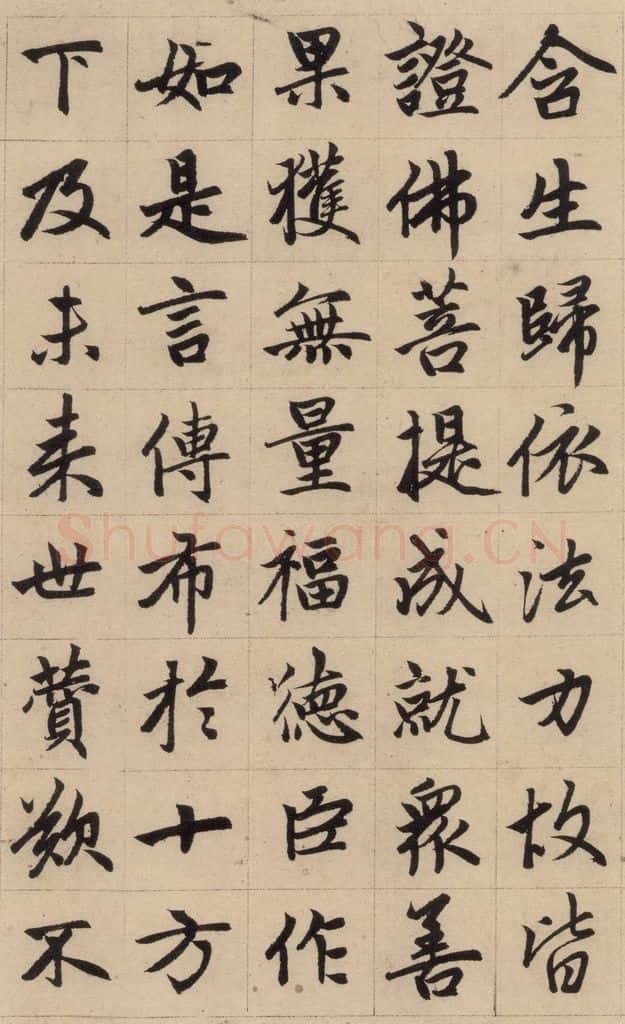 含生歸依法力故皆
證佛菩提成就衆善
果獲無量福德臣作
如是言傳布於十方
下及未来世賛歎不
Shufawang.CN